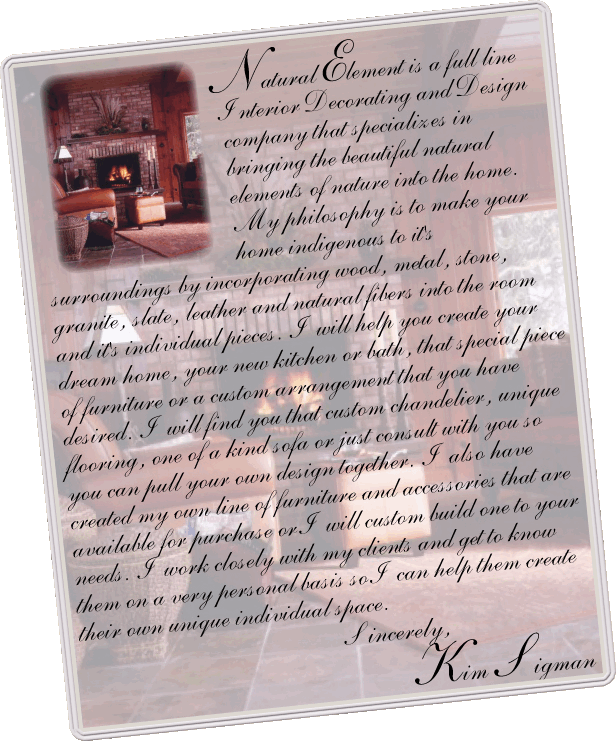 Natural Element is a full line
Interior Decorating and Design
company that specializes in
bringing the beautiful natural
elements of nature into the home.
My philosophy is to make your
home indigenous to it's
surroundings by incorporating wood, metal, stone,
granite, slate, leather and natural fibers into the room
and it's individual pieces. I will help you create your
dream home, your new kitchen or bath, that special piece
of furniture or a custom arrangement that you have
desired. I will find you that custom chandelier, unique
flooring, one of a kind sofa or just consult with you so
you can pull your own design together. I also have
created my own line of furniture and accessories that are
available for purchase or I will custom build one to your
needs. I work closely with my clients and get to know
them on a very personal basis so I can help them create
their own unique individual space.
Sincerely,
Kim Sigman